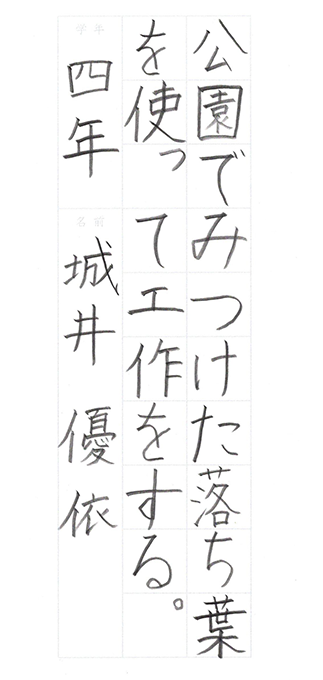 公園でみつけた落ち葉
を使って工作をする。
学年 四年 名前 城井 優依